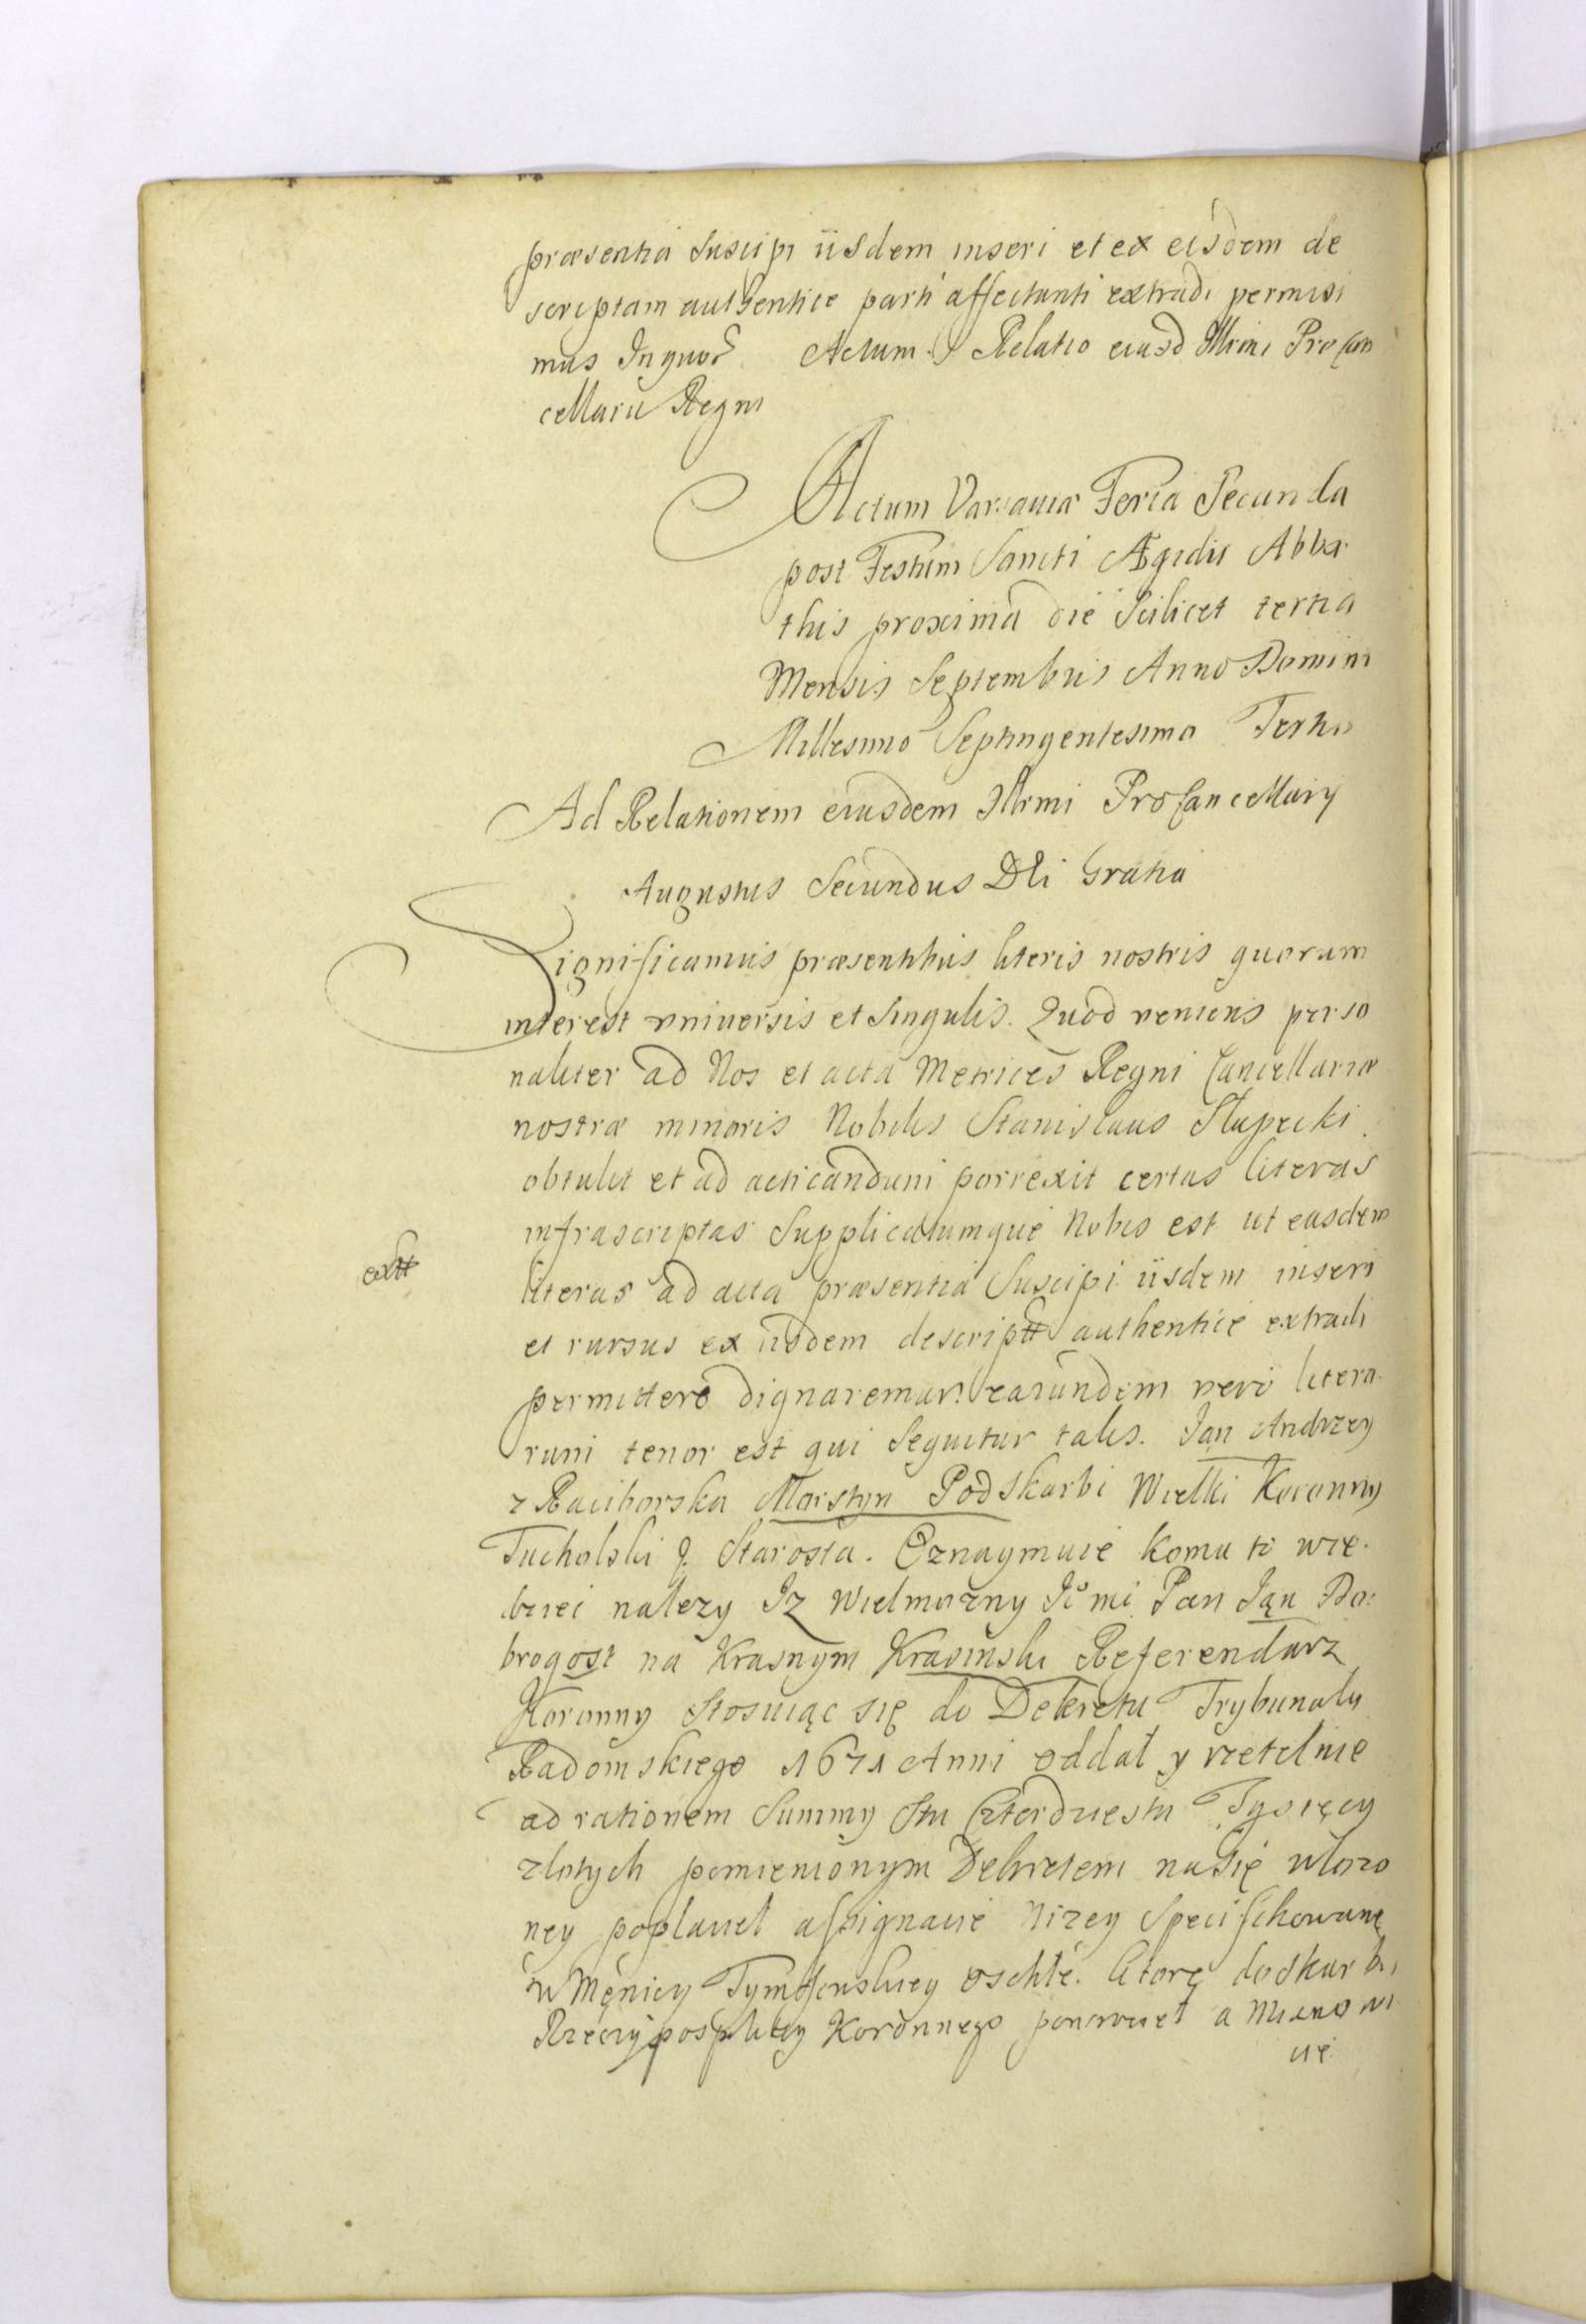 præsentia suscipi iisdem inseri et ex eisdem de
scriptam authentice parti affectanti extradi permisi
mus In quor Actum Relatio eiusd Illrmi Procan
cellarii Regni
Actum Varsaviæ Feria Secunda
post Festum Sancti Ægidii Abba
this proxima die Scilicet tertia
Mensis Septembris Anno Domini
Millesimo Septingentesimo Tertio
Ad Relationem eiusdem Illrmi ProCancellary
Augustus Secundus DEi Gratia
Significamus præsentibus literis nostris quorum
interest vniuersis et Singulis. Quod veniens perso
naliter ad Nos et acta Metrices Regni Cancellariæ
nostræ minoris Nobilis Stanislaus Słupecki
obtulit et ad acticandum porrexit certas literas
infrascriptas Supplicatumque Nobis est ut easdem
extt
literas ad acta præsentia Suscipi iisdem inseri
et rursus ex iisdem descriptt authentice extradi
permittere dignaremur: earundem vero litera
rum tenor est qui Sequitur talis. Jan Andrzey
z Raciborska Morstyn Podskarbi Wielki Koronny
Tucholski &. Starosta. Oznaymuie komu to wie
dziei nalezy Iz Wielmozny Jo mi Pan Jan Do:
brogost na Krasnym Krasinski Referendarz
Koronny Stosuiąc się do Dekretu Trybunalu
Radomskiego 1671 Anni oddał y rzetelnie
ad rationem Summy Stu Czterdziestu Tysięcy
zlotych pomienionym Dekretem na się włozo
ney popłacił assignacie nizey specifikowane
w Męnicy Tymffenskiey
ktore do skarbu
Rzeczyposplitey Koronnego ponowieł a Mianowi
cie